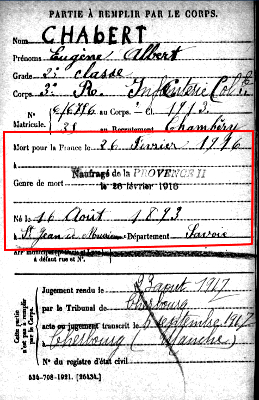 PARTIE À REMPLIR PAR LE CORPS.
Nom CHABERT
Prénoms Eugène Albert
Grade 2e classe
Corps 3e R. Infanterie Cole
N° au Corps. Cl. 1913.
Matricule. 38 au Recrutement Chambéry
Mort pour la France le 26 février 1916
Naufragé de la PROVENCE II
Genre de mort
le 26 février 1916
Né le 16 Août 1893
à St Jean de Département Savoie
à défaut rue et N°.
Jugement rendu le 23 aout 1917
par le Tribunal de Cherbourg
acte ou jugement transcrit le septembre 1917
à Cherbourg (Manche)
N° du registre d'état civil
Cette partie
n'est pas à remplir
par le Corps.
534-708-1921. [26434.]